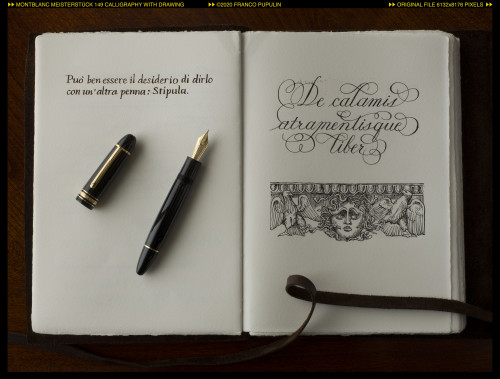 MONTBLANC MEISTERSTOCK 149 CALLIGRAPHY WITH DRAWING
©2020 FRANCO PUPULIN
ORIGINAL FILE 8132x8176 PIXELS
Può ben essere il desiderio di dirlo
con un'altra penna: Stipula.
De calamis
atramentisque
liber